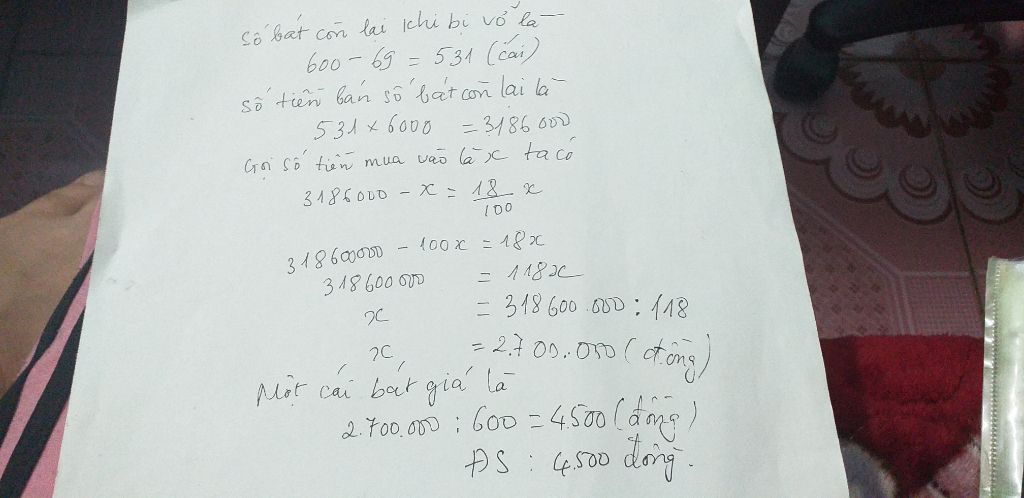 Số bát còn lại khi bị vỡ là
600 - 69 = 531 (cái)
Số tiền bán số bát còn lại là
531 x 6000 = 3186000
Gọi số tiền mua vào là x ta có
3186000 - x = 18/100 x
318600000 - 100x = 18x
318600000 = 118x
x = 318600.000 : 118
x = 2.700.000 (đồng)
Một cái bát giá là
2.700.000 : 600 = 4.500 (đồng)
ĐS : 4.500 đồng.